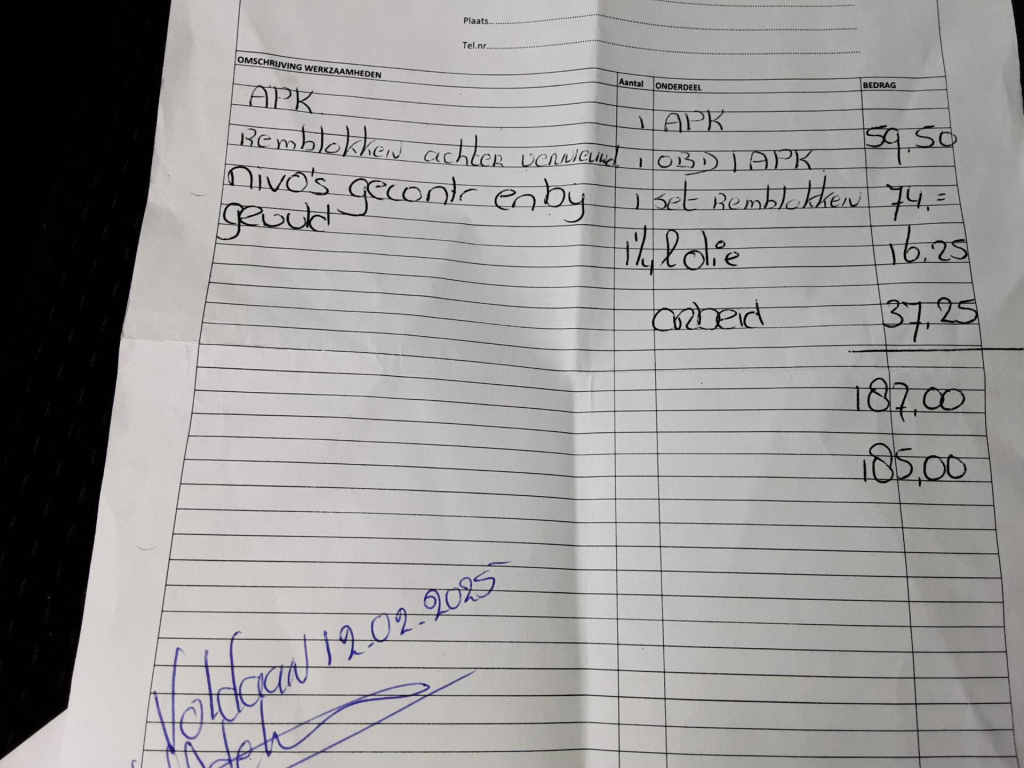 Plaats
Tel.nr.
OMSCHRIJVING WERKZAAMHEDEN Aantal ONDERDEEL BEDRAG
APK 1 APK 59,50
Remblokken achter vernieuwd 1 OBD / APK
nivo's gecontr en by 1 set Remblokken 74,=
gevuld 1½ l olie 16,25
arbeid 37,25
187,00
185,00
Voldaan 12.02.2025